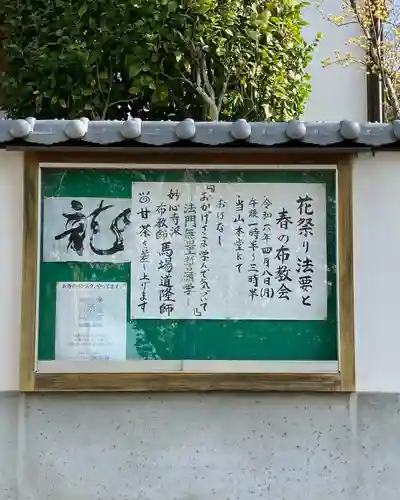 花祭り法要と
春の布教会
令和六年四月八日(月)
午後一時半〜三時半
当山本堂にて
おはなし
「おかげさま 学んで気づいて」
法門無量誓願学
妙心寺派
布教師 馬場道隆師
甘茶を差し上げます
龍
お寺のインスタ、やってます